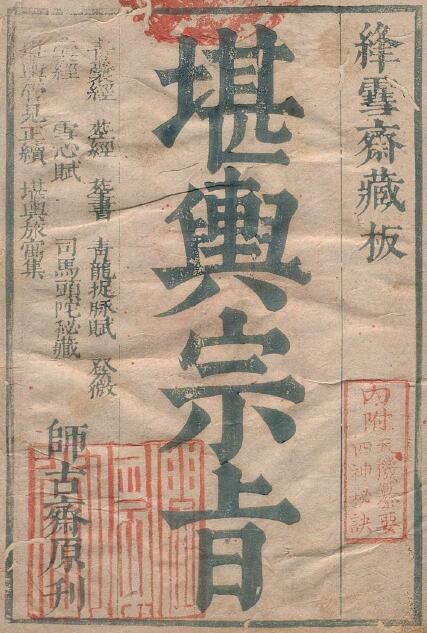 絳雪齋藏板
內附
四神秘訣
堪輿宗㫖
青囊經 塟經 塟書 青龍捉脉賦 發微
經 雪心賦 司馬頭陀秘藏
堪輿管見正續 堪輿旅寓集
師古齋原刊